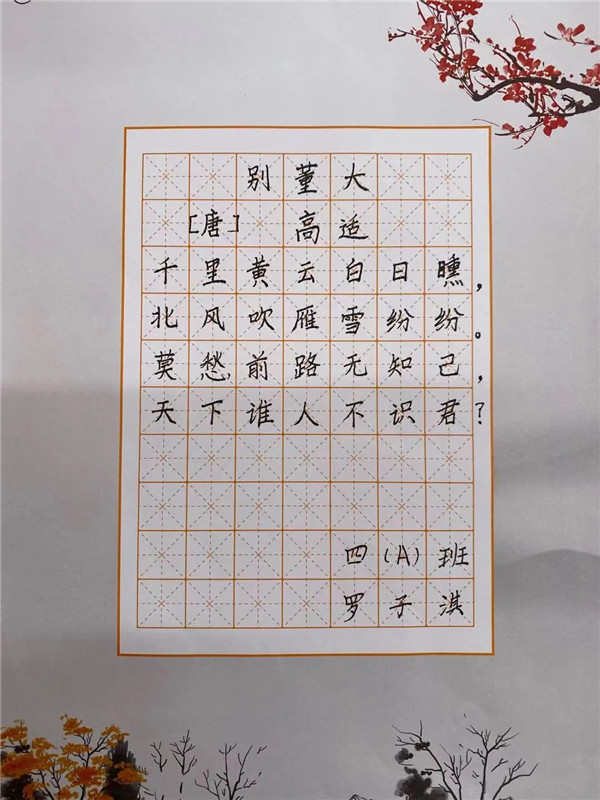 别董大
[唐] 高适
千里黄云白日曛，
北风吹雁雪纷纷。
莫愁前路无知己，
天下谁人不识君？
四(A)班
罗子淇